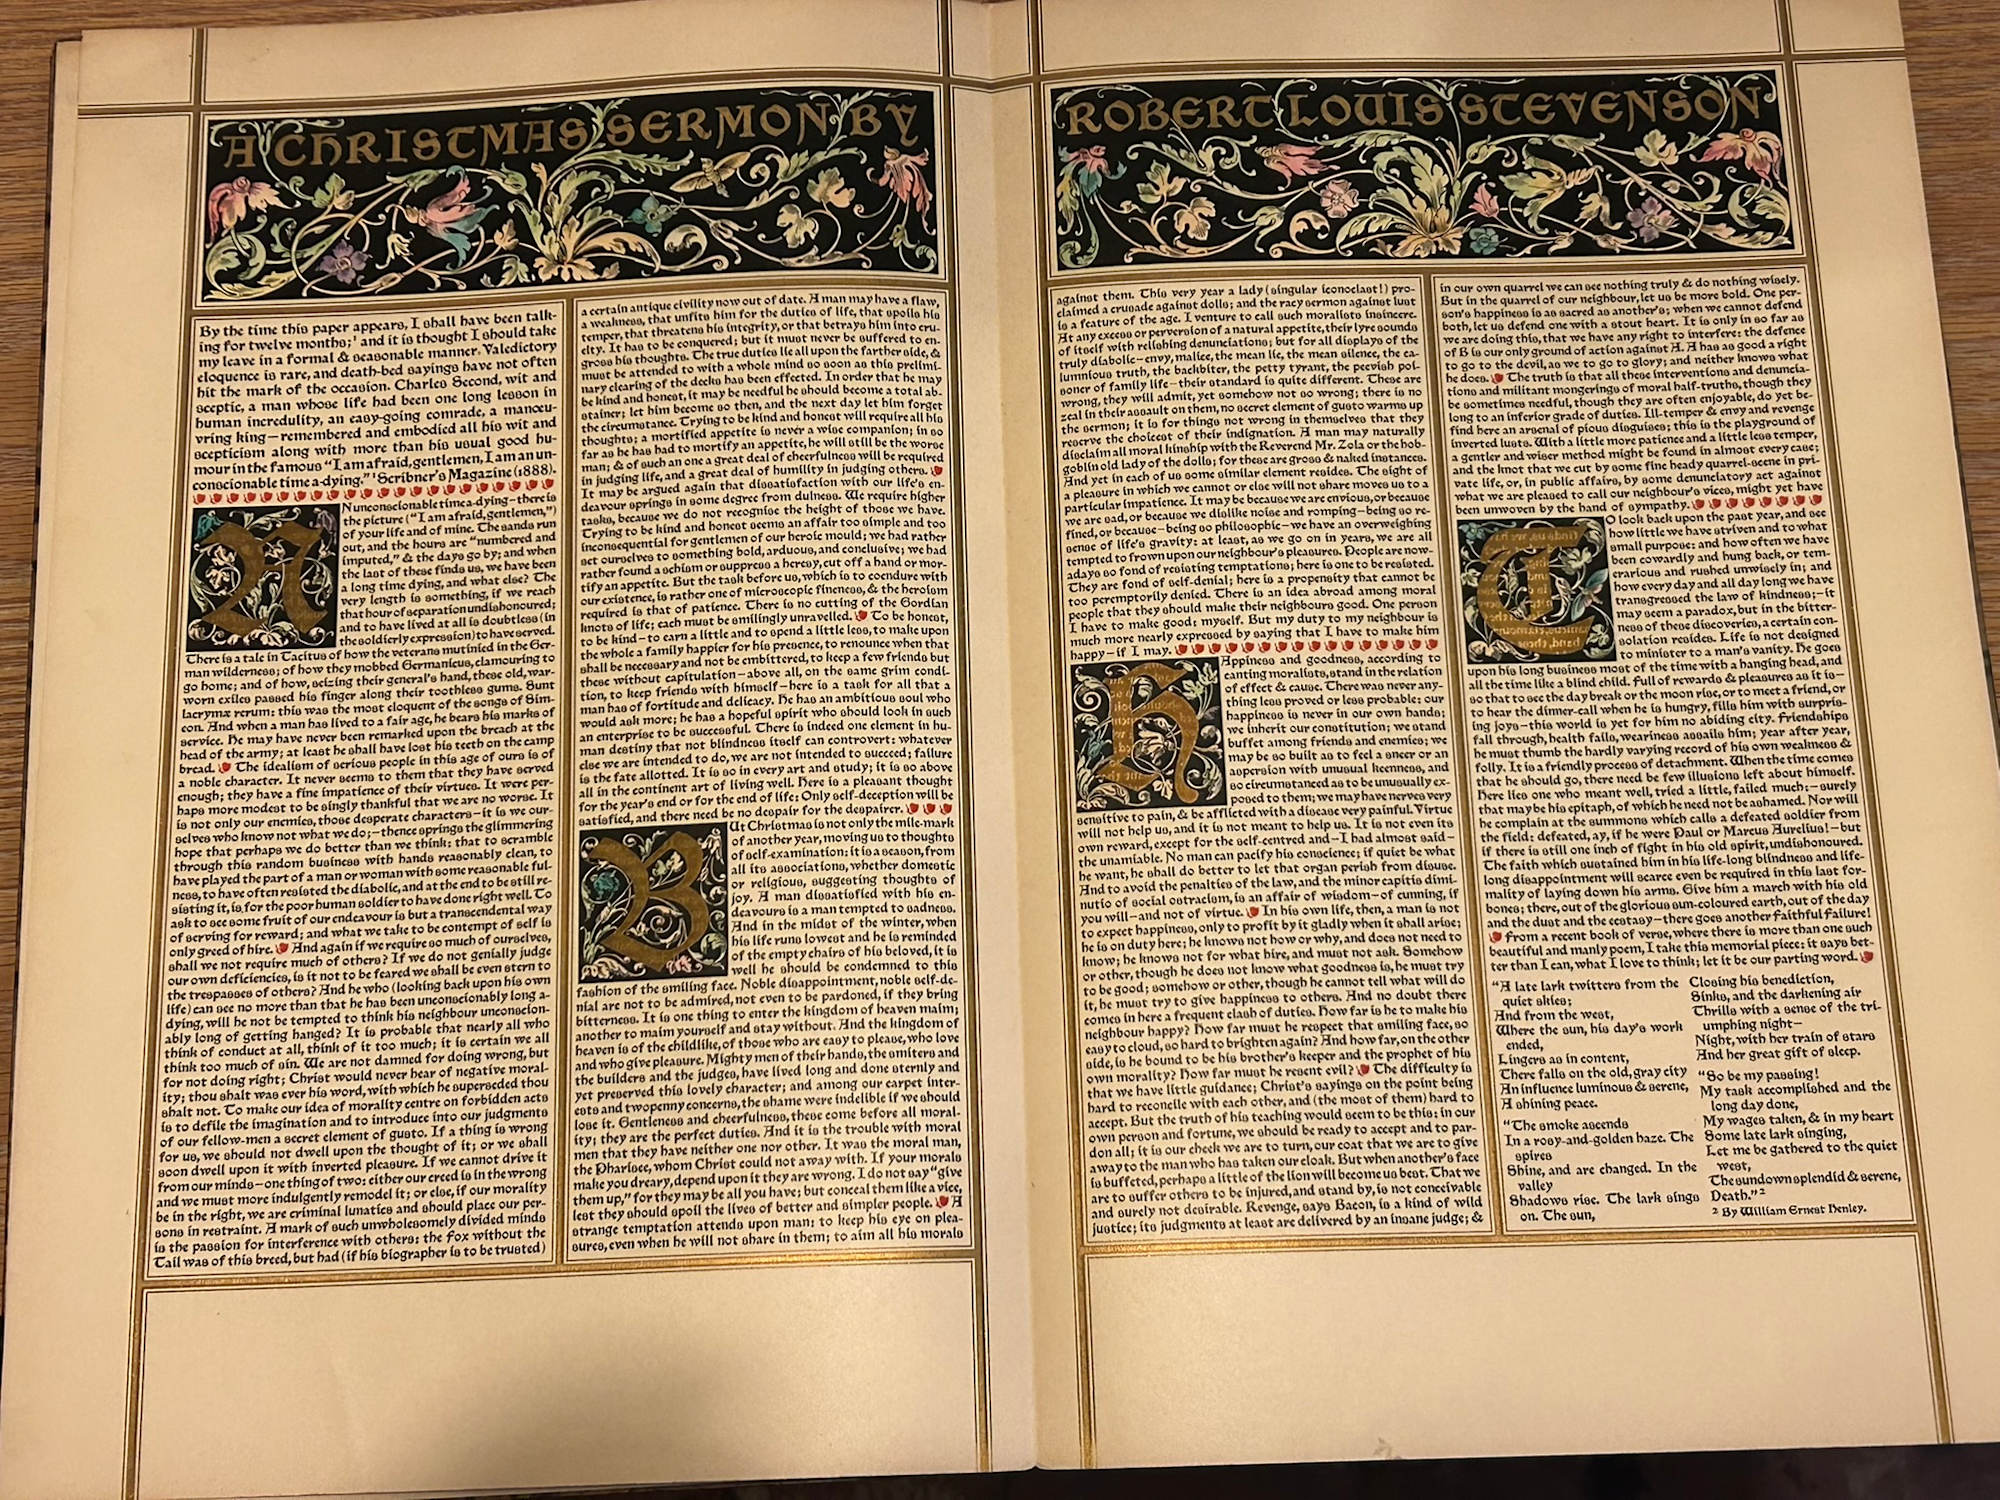 A CHRISTMAS SERMON BY
ROBERT LOUIS STEVENSON
By the time this paper appears, I shall have been talk-
ing for twelve months;¹ and it is thought I should take
my leave in a formal & seasonable manner. Valedictory
eloquence is rare, and death-bed sayings have not often
hit the mark of the occasion. Charles Second, wit and
sceptic, a man whose life had been one long lesson in
human incredulity, an easy-going comrade, a manœu-
vring king—remembered and embodied all his wit and
scepticism along with more than his usual good hu-
mour in the famous "I am afraid, gentlemen, I am an un-
conscionable time a-dying." ¹Scribner's Magazine (1888).
AN unconscionable time a-dying—there is
the picture ("I am afraid, gentlemen,")
of your life and of mine. The sands run
out, and the hours are "numbered and
imputed," & the days go by; and when
the last of these finds us, we have been
a long time dying, and what else? The
very length is something, if we reach
that hour of separation undishonoured;
and to have lived at all is doubtless (in
the soldierly expression) to have served.
There is a tale in Tacitus of how the veterans mutinied in the Ger-
man wilderness; of how they mobbed Germanicus, clamouring to
go home; and of how, seizing their general's hand, these old, war-
worn exiles passed his finger along their toothless gums. Sunt
lacrymæ rerum: this was the most eloquent of the songs of Sim-
eon. And when a man has lived to a fair age, he bears his marks of
service. He may have never been remarked upon the breach at the
head of the army; at least he shall have lost his teeth on the camp
bread. The idealism of serious people in this age of ours is of
a noble character. It never seems to them that they have served
enough; they have a fine impatience of their virtues. It were per-
haps more modest to be singly thankful that we are no worse. It
is not only our enemies, those desperate characters—it is we our-
selves who know not what we do;—thence springs the glimmering
hope that perhaps we do better than we think: that to scramble
through this random business with hands reasonably clean, to
have played the part of a man or woman with some reasonable ful-
ness, to have often resisted the diabolic, and at the end to be still re-
sisting it, is for the poor human soldier to have done right well. To
ask to see some fruit of our endeavour is but a transcendental way
of serving for reward; and what we take to be contempt of self is
only greed of hire. And again if we require so much of ourselves,
shall we not require much of others? If we do not genially judge
our own deficiencies, is it not to be feared we shall be even stern to
the trespasses of others? And he who (looking back upon his own
life) can see no more than that he has been unconscionably long a-
dying, will he not be tempted to think his neighbour unconscion-
ably long of getting hanged? It is probable that nearly all who
think of conduct at all, think of it too much; it is certain we all
think too much of sin. We are not damned for doing wrong, but
for not doing right; Christ would never hear of negative moral-
ity; thou shalt was ever his word, with which he superseded thou
shalt not. To make our idea of morality centre on forbidden acts
is to defile the imagination and to introduce into our judgments
of our fellow-men a secret element of gusto. If a thing is wrong
for us, we should not dwell upon the thought of it; or we shall
soon dwell upon it with inverted pleasure. If we cannot drive it
from our minds—one thing of two: either our creed is in the wrong
and we must more indulgently remodel it; or else, if our morality
be in the right, we are criminal lunatics and should place our per-
sons in restraint. A mark of such unwholesomely divided minds
is the passion for interference with others: the Fox without the
Tail was of this breed, but had (if his biographer is to be trusted)
a certain antique civility now out of date. A man may have a flaw,
a weakness, that unfits him for the duties of life, that spoils his
temper, that threatens his integrity, or that betrays him into cru-
elty. It has to be conquered; but it must never be suffered to en-
gross his thoughts. The true duties lie all upon the farther side, &
must be attended to with a whole mind so soon as this prelimi-
nary clearing of the decks has been effected. In order that he may
be kind and honest, it may be needful he should become a total ab-
stainer; let him become so then, and the next day let him forget
the circumstance. Trying to be kind and honest will require all his
thoughts; a mortified appetite is never a wise companion; in so
far as he has had to mortify an appetite, he will still be the worse
man; & of such an one a great deal of cheerfulness will be required
in judging life, and a great deal of humility in judging others.
It may be argued again that dissatisfaction with our life's en-
deavour springs in some degree from dulness. We require higher
tasks, because we do not recognise the height of those we have.
Trying to be kind and honest seems an affair too simple and too
inconsequential for gentlemen of our heroic mould; we had rather
set ourselves to something bold, arduous, and conclusive; we had
rather found a schism or suppress a heresy, cut off a hand or mor-
tify an appetite. But the task before us, which is to coendure with
our existence, is rather one of microscopic fineness, & the heroism
required is that of patience. There is no cutting of the Gordian
knots of life; each must be smilingly unravelled. To be honest,
to be kind—to earn a little and to spend a little less, to make upon
the whole a family happier for his presence, to renounce when that
shall be necessary and not be embittered, to keep a few friends but
these without capitulation—above all, on the same grim condi-
tion, to keep friends with himself—here is a task for all that a
man has of fortitude and delicacy. He has an ambitious soul who
would ask more; he has a hopeful spirit who should look in such
an enterprise to be successful. There is indeed one element in hu-
man destiny that not blindness itself can controvert: whatever
else we are intended to do, we are not intended to succeed; failure
is the fate allotted. It is so in every art and study; it is so above
all in the continent art of living well. Here is a pleasant thought
for the year's end or for the end of life: Only self-deception will be
satisfied, and there need be no despair for the despairer.
BUt Christmas is not only the mile-mark
of another year, moving us to thoughts
of self-examination: it is a season, from
all its associations, whether domestic
or religious, suggesting thoughts of
joy. A man dissatisfied with his en-
deavours is a man tempted to sadness.
And in the midst of the winter, when
his life runs lowest and he is reminded
of the empty chairs of his beloved, it is
well he should be condemned to this
fashion of the smiling face. Noble disappointment, noble self-de-
nial are not to be admired, not even to be pardoned, if they bring
bitterness. It is one thing to enter the kingdom of heaven maim;
another to maim yourself and stay without. And the kingdom of
heaven is of the childlike, of those who are easy to please, who love
and who give pleasure. Mighty men of their hands, the smiters and
the builders and the judges, have lived long and done sternly and
yet preserved this lovely character; and among our carpet inter-
ests and twopenny concerns, the shame were indelible if we should
lose it. Gentleness and cheerfulness, these come before all moral-
ity; they are the perfect duties. And it is the trouble with moral
men that they have neither one nor other. It was the moral man,
the Pharisee, whom Christ could not away with. If your morals
make you dreary, depend upon it they are wrong. I do not say "give
them up," for they may be all you have; but conceal them like a vice,
lest they should spoil the lives of better and simpler people. A
strange temptation attends upon man: to keep his eye on plea-
sures, even when he will not share in them; to aim all his morals
against them. This very year a lady (singular iconoclast!) pro-
claimed a crusade against dolls; and the racy sermon against lust
is a feature of the age. I venture to call such moralists insincere.
At any excess or perversion of a natural appetite, their lyre sounds
of itself with relishing denunciations; but for all displays of the
truly diabolic—envy, malice, the mean lie, the mean silence, the ca-
lumnious truth, the backbiter, the petty tyrant, the peevish poi-
soner of family life—their standard is quite different. These are
wrong, they will admit, yet somehow not so wrong; there is no
zeal in their assault on them, no secret element of gusto warms up
the sermon; it is for things not wrong in themselves that they
reserve the choicest of their indignation. A man may naturally
disclaim all moral kinship with the Reverend Mr. Zola or the hob-
goblin old lady of the dolls; for these are gross & naked instances.
And yet in each of us some similar element resides. The sight of
a pleasure in which we cannot or else will not share moves us to a
particular impatience. It may be because we are envious, or because
we are sad, or because we dislike noise and romping—being so re-
fined, or because—being so philosophic—we have an overweighing
sense of life's gravity: at least, as we go on in years, we are all
tempted to frown upon our neighbour's pleasures. People are now-
adays so fond of resisting temptations; here is one to be resisted.
They are fond of self-denial; here is a propensity that cannot be
too peremptorily denied. There is an idea abroad among moral
people that they should make their neighbours good. One person
I have to make good: myself. But my duty to my neighbour is
much more nearly expressed by saying that I have to make him
happy—if I may.
HAppiness and goodness, according to
canting moralists, stand in the relation
of effect & cause. There was never any-
thing less proved or less probable: our
happiness is never in our own hands;
we inherit our constitution; we stand
buffet among friends and enemies; we
may be so built as to feel a sneer or an
aspersion with unusual keenness, and
so circumstanced as to be unusually ex-
posed to them; we may have nerves very
sensitive to pain, & be afflicted with a disease very painful. Virtue
will not help us, and it is not meant to help us. It is not even its
own reward, except for the self-centred and—I had almost said—
the unamiable. No man can pacify his conscience; if quiet be what
he want, he shall do better to let that organ perish from disuse.
And to avoid the penalties of the law, and the minor capitis dimi-
nutio of social ostracism, is an affair of wisdom—of cunning, if
you will—and not of virtue. In his own life, then, a man is not
to expect happiness, only to profit by it gladly when it shall arise;
he is on duty here; he knows not how or why, and does not need to
know; he knows not for what hire, and must not ask. Somehow
or other, though he does not know what goodness is, he must try
to be good; somehow or other, though he cannot tell what will do
it, he must try to give happiness to others. And no doubt there
comes in here a frequent clash of duties. How far is he to make his
neighbour happy? How far must he respect that smiling face, so
easy to cloud, so hard to brighten again? And how far, on the other
side, is he bound to be his brother's keeper and the prophet of his
own morality? How far must he resent evil? The difficulty is
that we have little guidance; Christ's sayings on the point being
hard to reconcile with each other, and (the most of them) hard to
accept. But the truth of his teaching would seem to be this: in our
own person and fortune, we should be ready to accept and to par-
don all; it is our cheek we are to turn, our coat that we are to give
away to the man who has taken our cloak. But when another's face
is buffeted, perhaps a little of the lion will become us best. That we
are to suffer others to be injured, and stand by, is not conceivable
and surely not desirable. Revenge, says Bacon, is a kind of wild
justice; its judgments at least are delivered by an insane judge; &
in our own quarrel we can see nothing truly & do nothing wisely.
But in the quarrel of our neighbour, let us be more bold. One per-
son's happiness is as sacred as another's; when we cannot defend
both, let us defend one with a stout heart. It is only in so far as
we are doing this, that we have any right to interfere: the defence
of B is our only ground of action against A. A has as good a right
to go to the devil, as we to go to glory; and neither knows what
he does. The truth is that all these interventions and denuncia-
tions and militant mongerings of moral half-truths, though they
be sometimes needful, though they are often enjoyable, do yet be-
long to an inferior grade of duties. Ill-temper & envy and revenge
find here an arsenal of pious disguises; this is the playground of
inverted lusts. With a little more patience and a little less temper,
a gentler and wiser method might be found in almost every case;
and the knot that we cut by some fine heady quarrel-scene in pri-
vate life, or, in public affairs, by some denunciatory act against
what we are pleased to call our neighbour's vices, might yet have
been unwoven by the hand of sympathy.
TO look back upon the past year, and see
how little we have striven and to what
small purpose: and how often we have
been cowardly and hung back, or tem-
erarious and rushed unwisely in; and
how every day and all day long we have
transgressed the law of kindness;—it
may seem a paradox, but in the bitter-
ness of these discoveries, a certain con-
solation resides. Life is not designed
to minister to a man's vanity. He goes
upon his long business most of the time with a hanging head, and
all the time like a blind child. Full of rewards & pleasures as it is—
so that to see the day break or the moon rise, or to meet a friend, or
to hear the dinner-call when he is hungry, fills him with surpris-
ing joys—this world is yet for him no abiding city. Friendships
fall through, health fails, weariness assails him; year after year,
he must thumb the hardly varying record of his own weakness &
folly. It is a friendly process of detachment. When the time comes
that he should go, there need be few illusions left about himself.
Here lies one who meant well, tried a little, failed much:—surely
that may be his epitaph, of which he need not be ashamed. Nor will
he complain at the summons which calls a defeated soldier from
the field: defeated, ay, if he were Paul or Marcus Aurelius!—but
if there is still one inch of fight in his old spirit, undishonoured.
The faith which sustained him in his life-long blindness and life-
long disappointment will scarce even be required in this last for-
mality of laying down his arms. Give him a march with his old
bones; there, out of the glorious sun-coloured earth, out of the day
and the dust and the ecstasy—there goes another Faithful Failure!
From a recent book of verse, where there is more than one such
beautiful and manly poem, I take this memorial piece: it says bet-
ter than I can, what I love to think; let it be our parting word.
"A late lark twitters from the
quiet skies;
And from the west,
Where the sun, his day's work
ended,
Lingers as in content,
There falls on the old, gray city
An influence luminous & serene,
A shining peace.
"The smoke ascends
In a rosy-and-golden haze. The
spires
Shine, and are changed. In the
valley
Shadows rise. The lark sings
on. The sun,
Closing his benediction,
Sinks, and the darkening air
Thrills with a sense of the tri-
umphing night—
Night, with her train of stars
And her great gift of sleep.
"So be my passing!
My task accomplished and the
long day done,
My wages taken, & in my heart
Some late lark singing,
Let me be gathered to the quiet
west,
The sundown splendid & serene,
Death."²
² By William Ernest Henley.